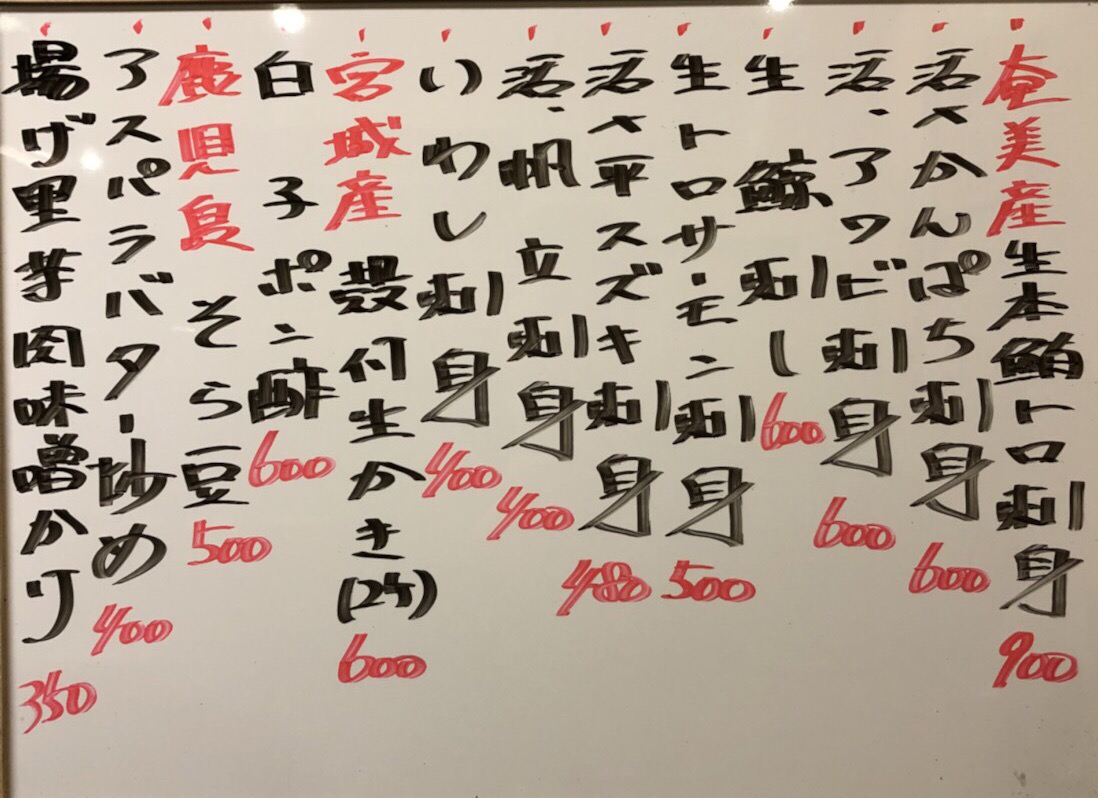 奄美産生本鮪トロ刺身 900
活〆かんぱち刺身 600
活、アワビ刺身 600
生鯨刺し 600
生トロサーモン刺身 500
活〆平スズキ刺身 480
活、帆立刺身 400
いわし刺身 400
宮城産殻付生かき(2ケ) 600
白子ポン酢 600
鹿児島そら豆 500
アスパラバター炒め 400
揚げ里芋肉味噌かけ 350